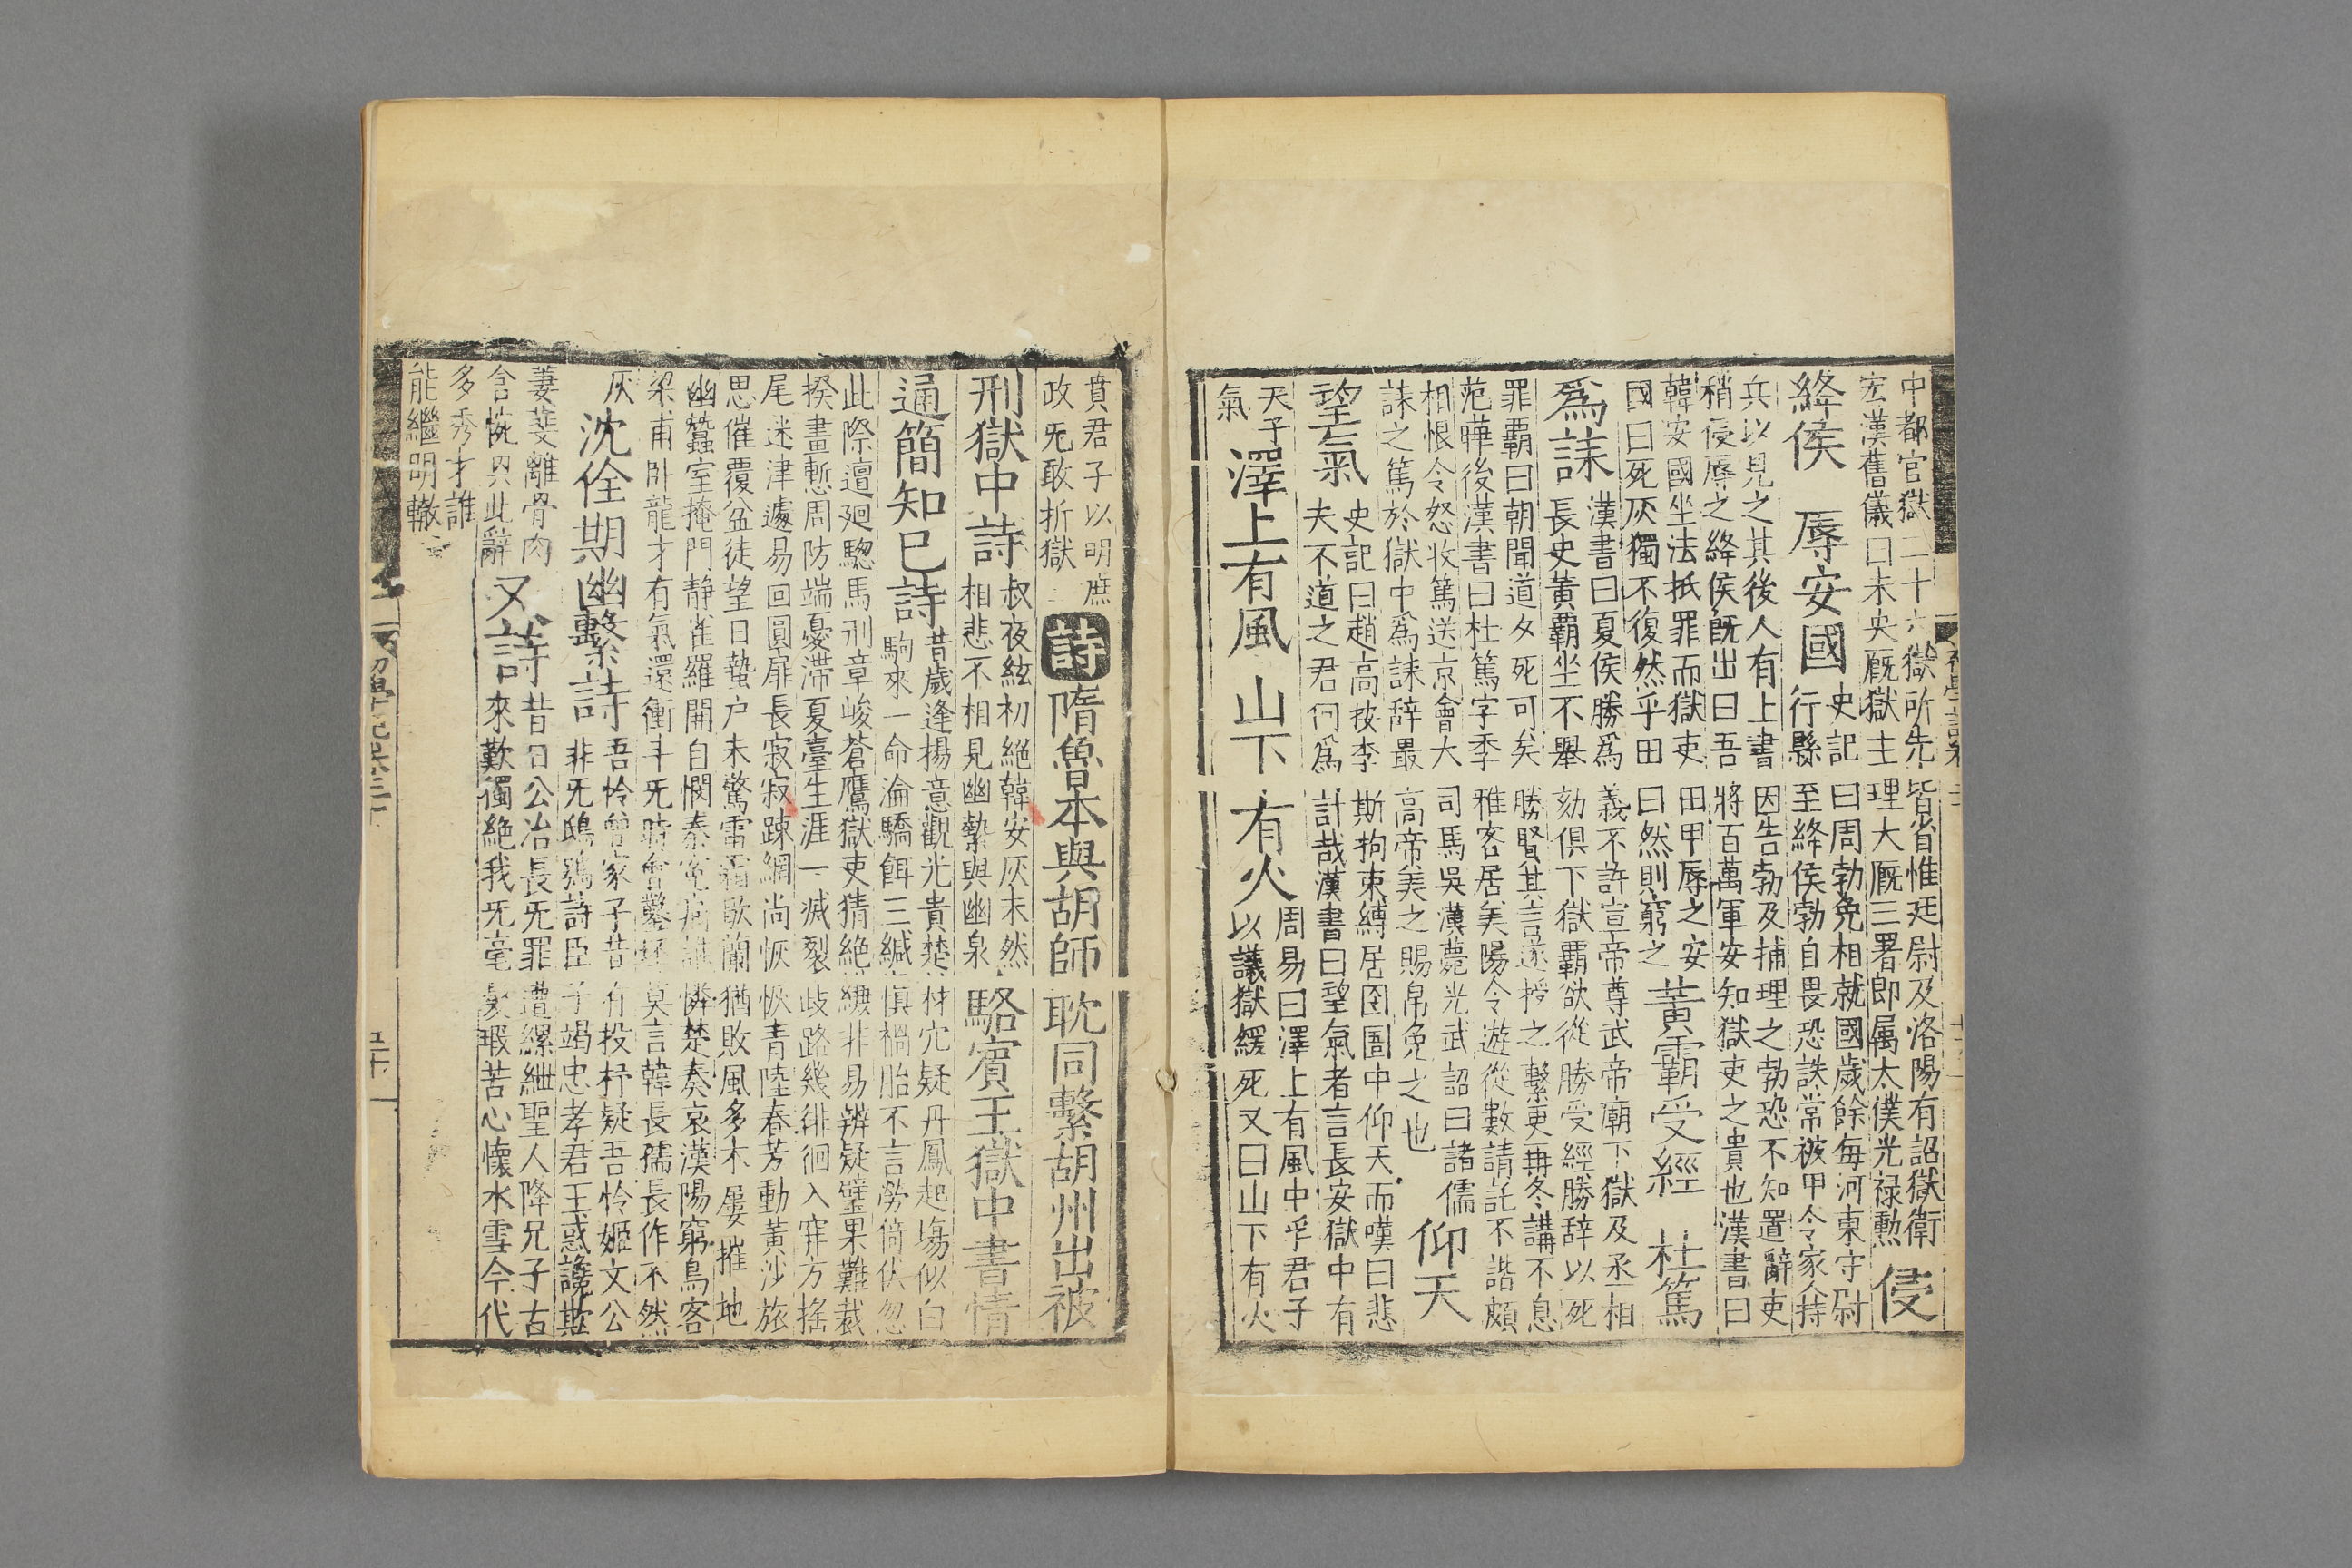 中都官獄二十六獄所先皆省惟廷尉及洛陽有詔獄衛
宏漢舊儀曰未央廐獄主理大廐三署郎属太僕光禄勲
侵
絳侯　辱安國
史記曰周勃免相就國歲餘每河東守尉
行縣至絳侯勃自畏恐誅常被甲令家人持
兵以見之其後人有上書因告勃及捕理之勃恐不知置辭吏
稍侵辱之絳侯既出曰吾將百萬軍安知獄吏之貴也漢書曰
韓安國坐法抵罪而獄吏田甲辱之安
國曰死灰獨不復然乎田曰然則窮之
黃霸受經　杜篤
爲誄
漢書曰夏侯勝爲義不許宣帝尊武帝廟下獄及丞相
長史黃霸坐不舉劾俱下獄霸欲從勝受經勝辞以死
罪霸曰朝聞道夕死可矣勝賢其言遂授之繫更再冬講不息
范曄後漢書曰杜篤字季雅客居美陽令遊從數請託不諧頗
相恨令怒收篤送京會大司馬吳漢薨光武詔曰諸儒
誄之篤於獄中爲誄辞最高帝美之賜帛免之也
仰天
望氣
史記曰趙高按李斯拘束縛居囹圄中仰天而嘆曰悲
夫不道之君何爲計哉漢書曰望氣者言長安獄中有
天子
氣
澤上有風　山下有火
周易曰澤上有風中孚君子
以議獄緩死又曰山下有火
賁君子以明庶
政旡敢折獄
詩
隋魯本與胡師耽同繫胡州出被
刑獄中詩
叔夜絃初絶韓安灰未然
相悲不相見幽縶與幽泉
駱賓王獄中書情
通簡知巳詩
昔歲逢揚意觀光貴楚材穴疑丹鳳起場似白
駒來一命淪驕餌三緘慎禍胎不言勞倚伏忽
此際邅廻驄馬刑章峻蒼鷹獄吏猜絶縑非易辨疑璧果難裁
揆畫慙周防端憂滞夏臺生涯一滅裂歧路幾徘徊入穽方搖
尾迷津遽易回圓扉長寂寂踈網尚恢恢青陸春芳動黃沙旅
思催覆盆徒望日蟄户未驚雷霜歇蘭猶敗風多木屢摧地
幽蠶室掩門静雀羅開自憫秦寃痛誰憐楚奏哀漢陽窮鳥客
梁甫卧龍才有氣還衝斗旡時會鑿坯莫言韓長孺長作不然
灰
沈佺期幽繫詩
吾怜曾家子昔有投杼疑吾怜姬文公
非旡鴟鴞詩臣子竭忠孝君王惑讒欺
萋斐離骨肉
含悗㒷此辭
又詩
昔日公冶長旡罪遭縲紲聖人降兄子古
來歎獨絶我旡毫髪瑕苦心懷冰雪今代
多秀才誰
能繼明轍